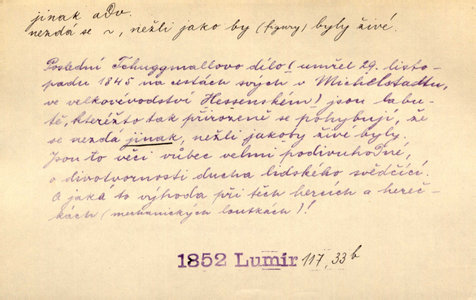 jinak aDv.
nezdá se ~, nežli jako by (figury) byly živé.
Poslední Tschuggmallovo dílo (umřel 29. listo-
padu 1845 na cestách svých v Michelstadtu,
ve velkovévodství Hessenském) jsou labu-
tě, kteréžto tak přirozeně se pohybují, že
se nezdá jinak, nežli jakoby živé byly.
Jsou to věci vůbec velmi podivuhodné,
o divotvornosti ducha lidského svědčící.
A jaká to výhoda při těch hercích a hereč-
kách (mechanických loutkách)!
1852 Lumír 117, 33b